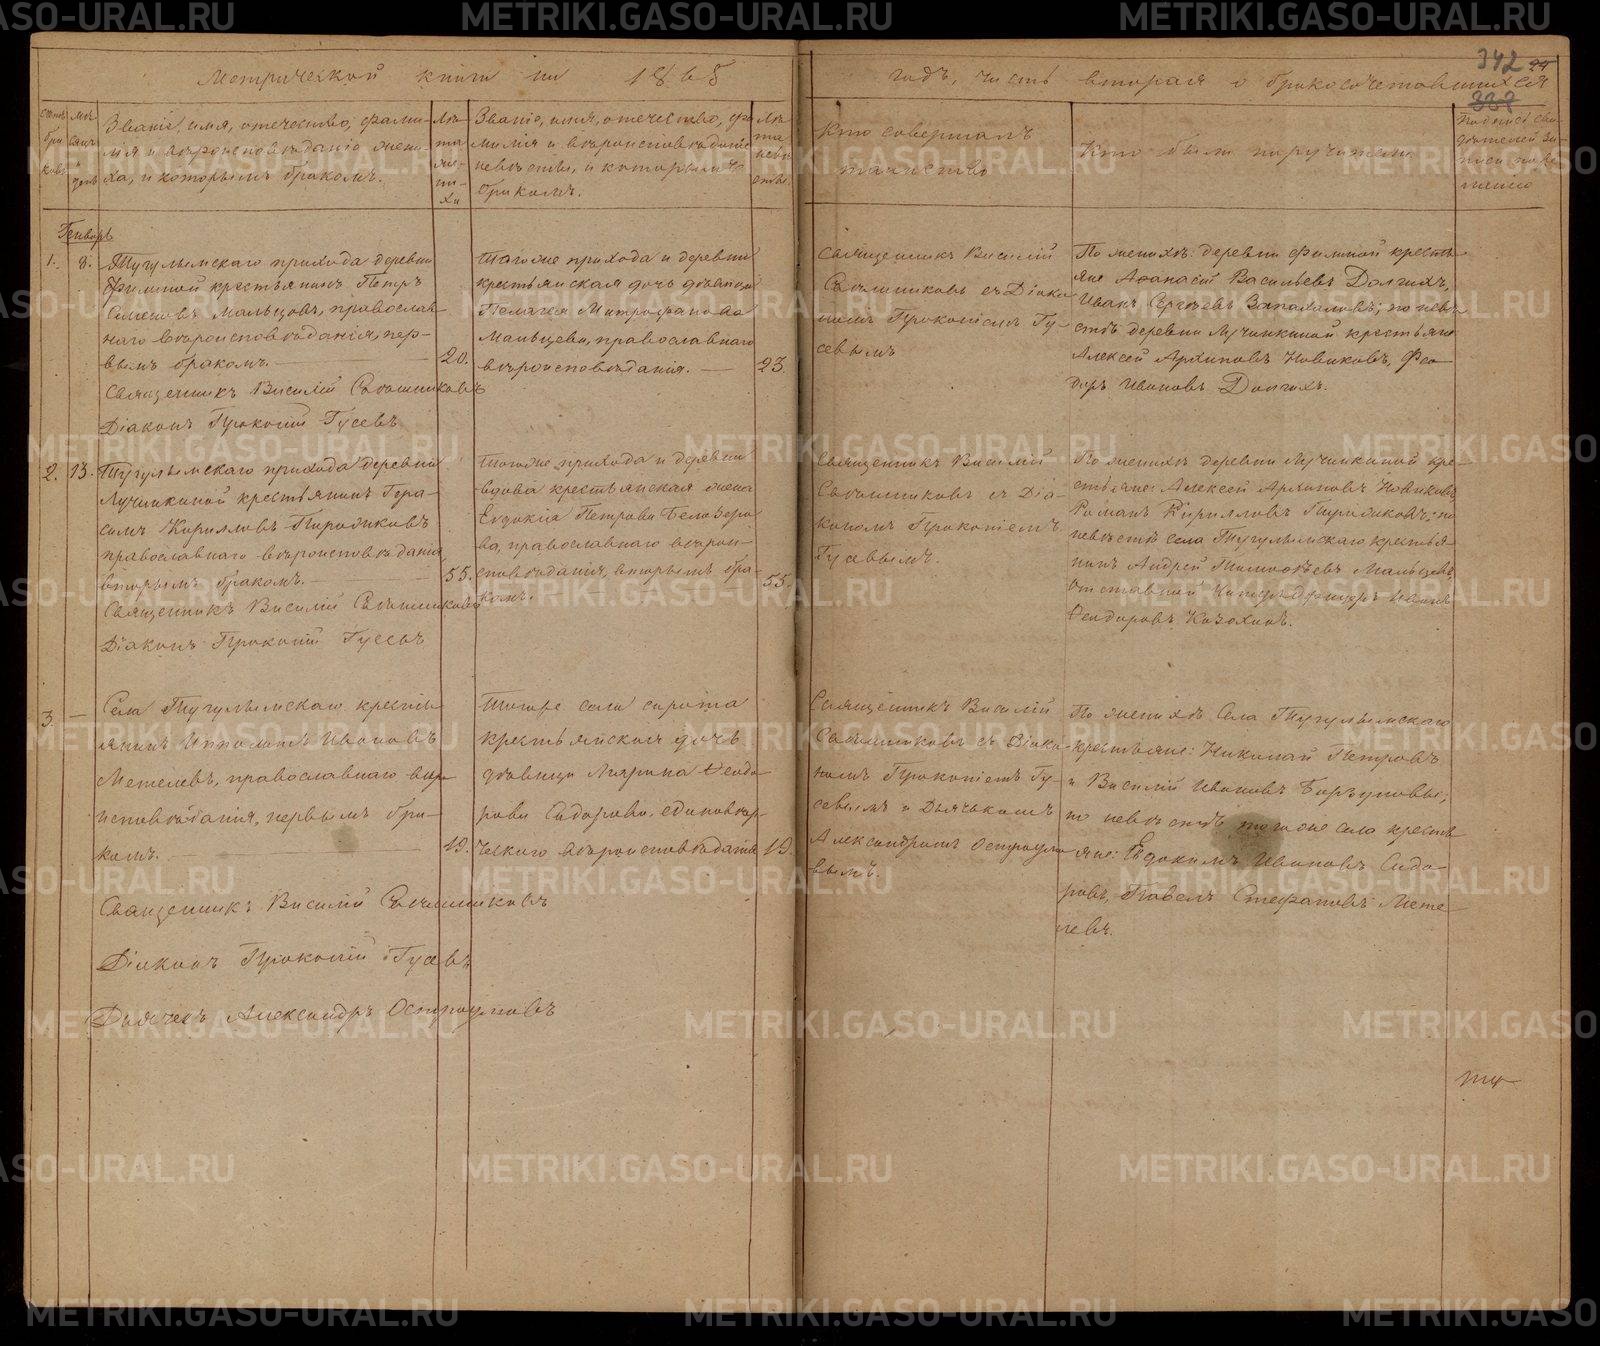 Метрической книги на 1868
годъ, часть вторая о бракосочетавшихся
342
Званіе, имя, отечество, фами-
лія и вѣроисповѣданіе жени-
ха, и которымъ бракомъ.
Лѣ-
та
же-
ни-
ха
Званіе, имя, отечество, фа
милія и вѣроисповѣданіе
невѣсты, и которымъ
бракомъ.
Лѣ
та
невѣ
сты.
Кто совершалъ
таинство
Кто были поручители
Генварь
1. 8.
Тугулымскаго прихода деревни
Филиной крестьянинъ Петръ
Семеновъ Мальцовъ, православ-
наго вѣроисповѣданія, пер-
вымъ бракомъ.
20.
Священникъ Василій
Діаконъ Прокопій Гусевъ
Тогоже прихода и деревни
крестьянская дочь дѣвица
Пелагея Митрофанова
Мальцева, православнаго
вѣроисповѣданія.
23.
Священникъ Василій
съ Діако
номъ Прокопіемъ Гу-
севымъ
По женихѣ деревни Филиной кресть
яне Афанасій Васильевъ Долгихъ,
Иванъ Сергѣевъ Запахаловъ; по невѣ
стѣ деревни Лучинкиной крестьяне
Алексей Архиповъ Новиковъ, Фео
доръ Ивановъ Долгихъ.
2. 13.
Тугулымскаго прихода деревни
Лучинкиной крестьянинъ Гера-
симъ Кириловъ Пирожковъ
православнаго вѣроисповѣданія
вторымъ бракомъ.
55.
Священникъ Василій
Діаконъ Прокопій Гусевъ
Тогоже прихода и деревни
вдова крестьянская жена
Евдокія Петрова Белозеро
ва, православнаго вѣрои-
сповѣданія, вторымъ бра-
комъ.
55.
Священникъ Василій
съ Діа-
кономъ Прокопіемъ
Гусевымъ.
По женихѣ деревни Лучинкиной кре-
стьяне: Алексей Архиповъ Новиковъ
Романъ Кирилловъ Пирожковъ; по
невѣстѣ села Тугулымскаго крестья-
нинъ Андрей Тимофѣевъ Мальцевъ,
Отставной Унтеръ Офицеръ Иванъ
Феодоровъ Казохинъ.
3. —
Села Тугулымскаго кресть
янинъ Ипполитъ Ивановъ
Метелевъ, православнаго вѣро
исповѣданія, первымъ бра-
комъ.
19.
Священникъ Василій
Діаконъ Прокопій Гусевъ
Дьячекъ Александръ Остроумовъ
Тогоже села сирота
крестьянская дочь
дѣвица Марина Феодо-
рова Сидорова, единовѣр-
ческаго вѣроисповѣданія
19.
Священникъ Василій
съ Діако-
номъ Прокопіемъ Гу-
севымъ и Дьячькомъ
Александромъ Остроумо
вымъ.
По женихѣ Села Тугулымскаго
крестьяне: Николай Петровъ
и Василій Ивановъ
по невѣстѣ тогоже села кресть
яне: Евдокимъ Ивановъ Сидо-
ровъ, Павелъ Стефановъ Мете-
левъ.
METRIKI.GASO-URAL.RU